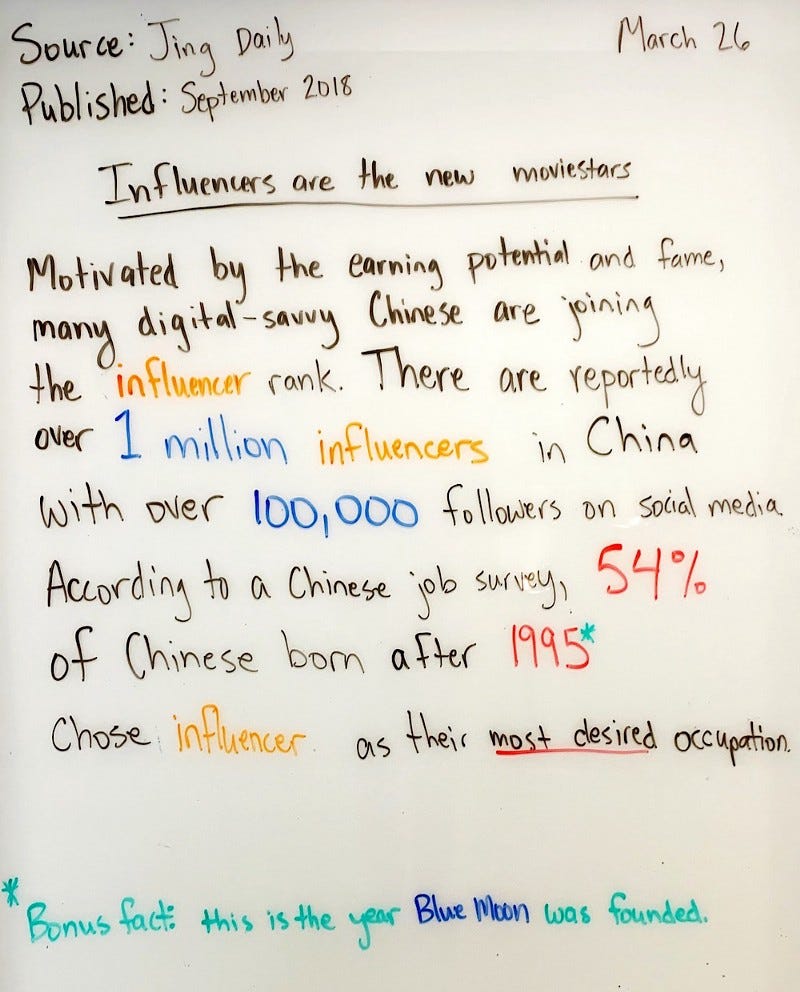 Source: Jing Daily March 26
Published: September 2018
Influencers are the new moviestars
Motivated by the earning potential and fame,
many digital-savvy Chinese are joining
the influencer rank. There are reportedly
over 1 million influencers in China
with over 100,000 followers on social media.
According to a Chinese job survey, 54%
of Chinese born after 1995*
Chose influencer as their most desired occupation.
* Bonus fact: this is the year Blue Moon was founded.